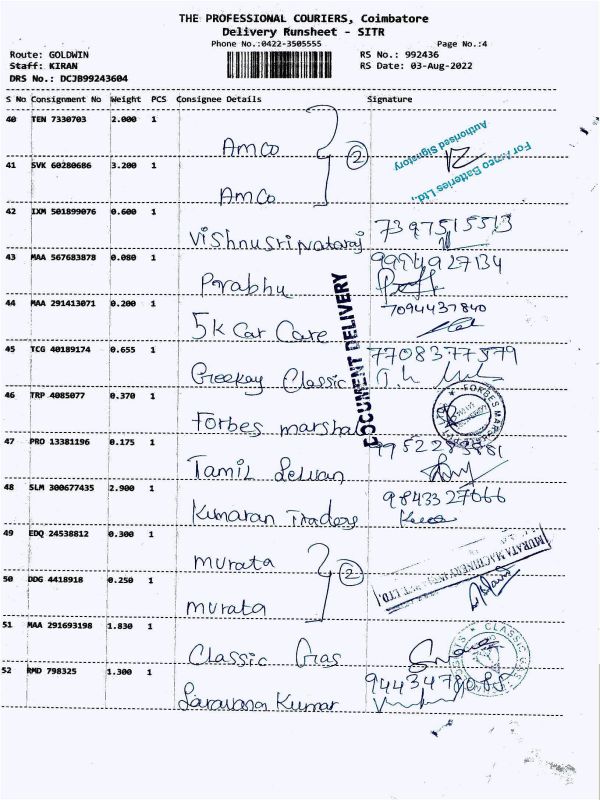 THE PROFESSIONAL COURIERS, Coimbatore
Delivery Runsheet - SITR
Phone No.:0422-3505555 Page No.:4
Route: GOLDWIN RS No.: 992436
Staff: KIRAN RS Date: 03-Aug-2022
DRS No.: DCJB99243604
S No Consignment No Weight PCS Consignee Details Signature
40 TEN 7330703 2.000 1 Amco
For Amco Batteries Ltd.,
Authorised Signatory
2
41 SVK 60280686 3.200 1 Amco
42 IXM 501899076 0.600 1 Vishnusri nataraj 7397515513
43 MAA 567683878 0.080 1 Prabhu 9994927134
44 MAA 291413071 0.200 1 5k Car Care 7094437840
DOCUMENT DELIVERY
45 TCG 40189174 0.655 1 Geekay Classic 7708377579
46 TRP 4085077 0.370 1 Forbes marshal
FORBES MARSHALL
47 PRO 13381196 0.175 1 Tamil Selvan
48 SLM 300677435 2.900 1 Kumaran Traders 9843327666
49 EDQ 24538812 0.300 1 murata
2
MURATA MACHINERY
PVT. LTD.
50 DDG 4418918 0.250 1 murata
51 MAA 291693198 1.830 1 Classic Gas
CLASSIC GAS
52 RMD 798325 1.300 1 Saravana Kumar 9443478088